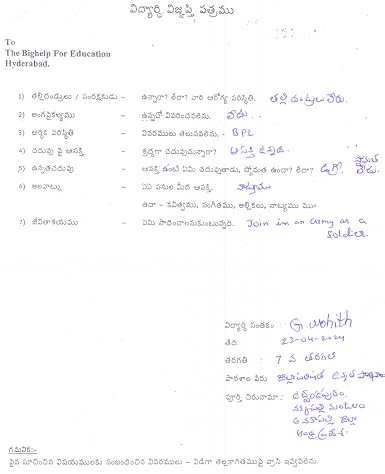 విద్యార్థి విజ్ఞప్తి పత్రము
To
The Bighelp For Education
Hyderabad.
1) తల్లిదండ్రులు / సంరక్షకుడు – ఉన్నారా? లేరా? వారి ఆరోగ్య పరిస్థితి. తల్లి దండ్రులు లేరు.
2) అంగవైకల్యము – ఉన్నచో వివరించవలెను. లేదు..
3) ఆర్థిక పరిస్థితి – వివరములు తెలుపవలెను. - BPL
4) చదువు పై ఆసక్తి – శ్రద్ధగా చదువుచున్నారా? ఆసక్తి ఉన్నది.
5) ఉన్నతచదువు – ఆసక్తి ఉంటే ఏమి చదువుతాడు, స్తోమత ఉందా? లేదా? స్తోమత లేదు.
6) అలవాట్లు – ఏఏ పనుల మీద ఆసక్తి. నాట్యము
ఉదా – కవిత్వము, సంగీతము, అల్లికలు, నాట్యము ము॥
7) జీవితాశయము – ఏమి సాధించాలనుకుంటున్నది. Join in an army as a
soldier.
విద్యార్థి సంతకం : G. Mohith
తేది. : 23-04-2024
తరగతి : 7 వ తరగతి
పాఠశాల పేరు : జిల్లాపరిషత్ ఉన్నత
పూర్తి చిరునామా : ఉద్దండపురం,
నక్కపల్లి మండలం
అనకాపల్లి జిల్లా
ఆంధ్రప్రదేశ్
గమనిక:-
పైన సూచించిన విషయములకు సంబంధించిన వివరములు – విడిగా తెల్లకాగితముపై వ్రాసి ఇవ్వవలెను.